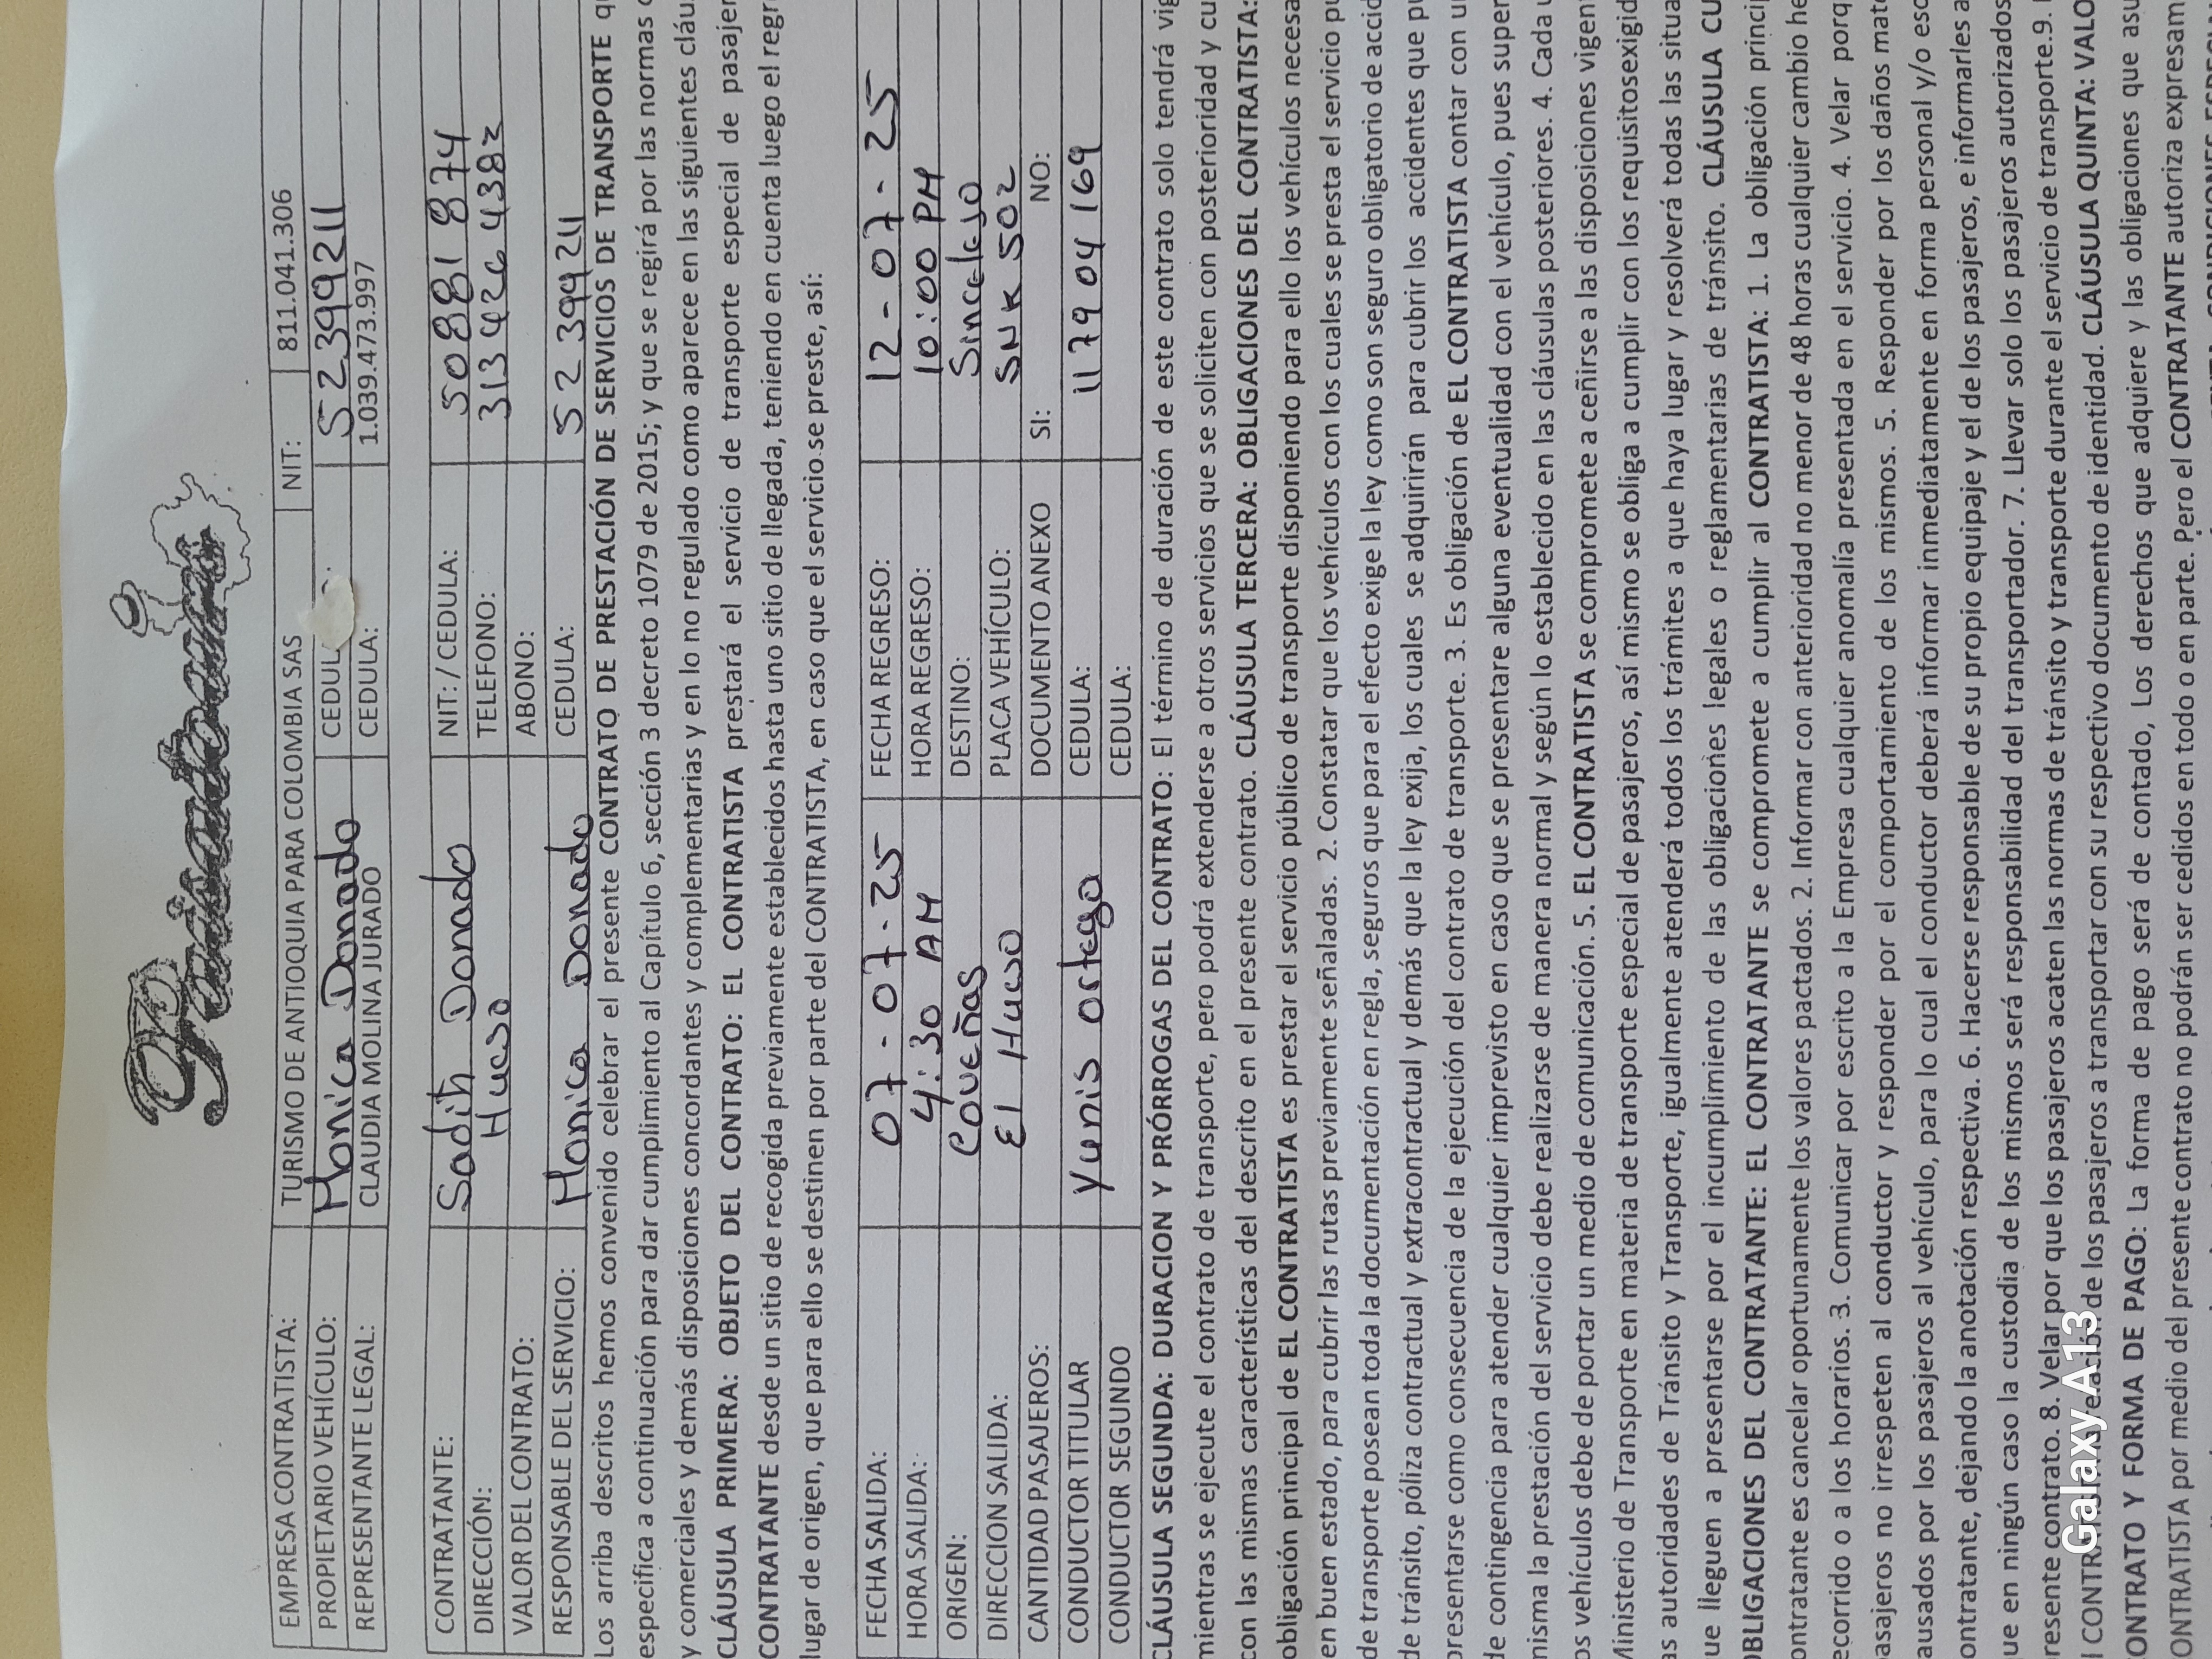 Paisadeando
EMPRESA CONTRATISTA: TURISMO DE ANTIOQUIA PARA COLOMBIA SAS NIT: 811.041.306
PROPIETARIO VEHÍCULO: Monica Donado CEDUL 52399211
REPRESENTANTE LEGAL: CLAUDIA MOLINA JURADO CEDULA: 1.039.473.997
CONTRATANTE: Sadith Donado NIT: / CEDULA: 50881874
DIRECCIÓN: Hueso TELEFONO: 313 426 4382
VALOR DEL CONTRATO: ABONO:
RESPONSABLE DEL SERVICIO: Monica Donado CEDULA: 52399211
Los arriba descritos hemos convenido celebrar el presente CONTRATO DE PRESTACIÓN DE SERVICIOS DE TRANSPORTE
especifica a continuación para dar cumplimiento al Capítulo 6, sección 3 decreto 1079 de 2015; y que se regirá por las normas
y comerciales y demás disposiciones concordantes y complementarias y en lo no regulado como aparece en las siguientes cláu
CLÁUSULA PRIMERA: OBJETO DEL CONTRATO: EL CONTRATISTA prestará el servicio de transporte especial de pasajer
CONTRATANTE desde un sitio de recogida previamente establecidos hasta uno sitio de llegada, teniendo en cuenta luego el regr
lugar de origen, que para ello se destinen por parte del CONTRATISTA, en caso que el servicio se preste, así:
FECHA SALIDA: 07-07-25 FECHA REGRESO: 12-07-25
HORA SALIDA: 4:30 AM HORA REGRESO: 10:00 PM
ORIGEN: Coveñas DESTINO: Sincelejo
DIRECCION SALIDA: El Hueso PLACA VEHÍCULO: SNK 502
CANTIDAD PASAJEROS: DOCUMENTO ANEXO SI: NO:
CONDUCTOR TITULAR Yumis Ortega CEDULA: 117904169
CONDUCTOR SEGUNDO CEDULA:
CLÁUSULA SEGUNDA: DURACION Y PRÓRROGAS DEL CONTRATO: El término de duración de este contrato solo tendrá vig
mientras se ejecute el contrato de transporte, pero podrá extenderse a otros servicios que se soliciten con posterioridad y cu
con las mismas características del descrito en el presente contrato. CLÁUSULA TERCERA: OBLIGACIONES DEL CONTRATISTA:
obligación principal de EL CONTRATISTA es prestar el servicio público de transporte disponiendo para ello los vehículos necesa
en buen estado, para cubrir las rutas previamente señaladas. 2. Constatar que los vehículos con los cuales se presta el servicio pu
de transporte posean toda la documentación en regla, seguros que para el efecto exige la ley como son seguro obligatorio de accid
de tránsito, póliza contractual y extracontractual y demás que la ley exija, los cuales se adquirirán para cubrir los accidentes que pu
presentarse como consecuencia de la ejecución del contrato de transporte. 3. Es obligación de EL CONTRATISTA contar con u
de contingencia para atender cualquier imprevisto en caso que se presentare alguna eventualidad con el vehículo, pues super
misma la prestación del servicio debe realizarse de manera normal y según lo establecido en las cláusulas posteriores. 4. Cada
os vehículos debe de portar un medio de comunicación. 5. EL CONTRATISTA se compromete a ceñirse a las disposiciones vigen
Ministerio de Transporte en materia de transporte especial de pasajeros, así mismo se obliga a cumplir con los requisitosexigid
as autoridades de Tránsito y Transporte, igualmente atenderá todos los trámites a que haya lugar y resolverá todas las situa
ue lleguen a presentarse por el incumplimiento de las obligaciones legales o reglamentarias de tránsito. CLÁUSULA CU
OBLIGACIONES DEL CONTRATANTE: EL CONTRATANTE se compromete a cumplir al CONTRATISTA: 1. La obligación princi
ontratante es cancelar oportunamente los valores pactados. 2. Informar con anterioridad no menor de 48 horas cualquier cambio
ecorrido o a los horarios. 3. Comunicar por escrito a la Empresa cualquier anomalía presentada en el servicio. 4. Velar porq
asajeros no irrespeten al conductor y responder por el comportamiento de los mismos. 5. Responder por los daños mate
ausados por los pasajeros al vehículo, para lo cual el conductor deberá informar inmediatamente en forma personal y/o esc
ontratante, dejando la anotación respectiva. 6. Hacerse responsable de su propio equipaje y el de los pasajeros, e informarles
ue en ningún caso la custodia de los mismos será responsabilidad del transportador. 7. Llevar solo los pasajeros autorizados
resente contrato. 8. Velar por que los pasajeros acaten las normas de tránsito y transporte durante el servicio de transporte.9.
l de los pasajeros a transportar con su respectivo documento de identidad. CLÁUSULA QUINTA: VALO
ONTRATO Y FORMA DE PAGO: La forma de pago será de contado, Los derechos que adquiere y las obligaciones que asu
ONTRATISTA por medio del presente contrato no podrán ser cedidos en todo o en parte. Pero el CONTRATANTE autoriza expresam
Galaxy A13